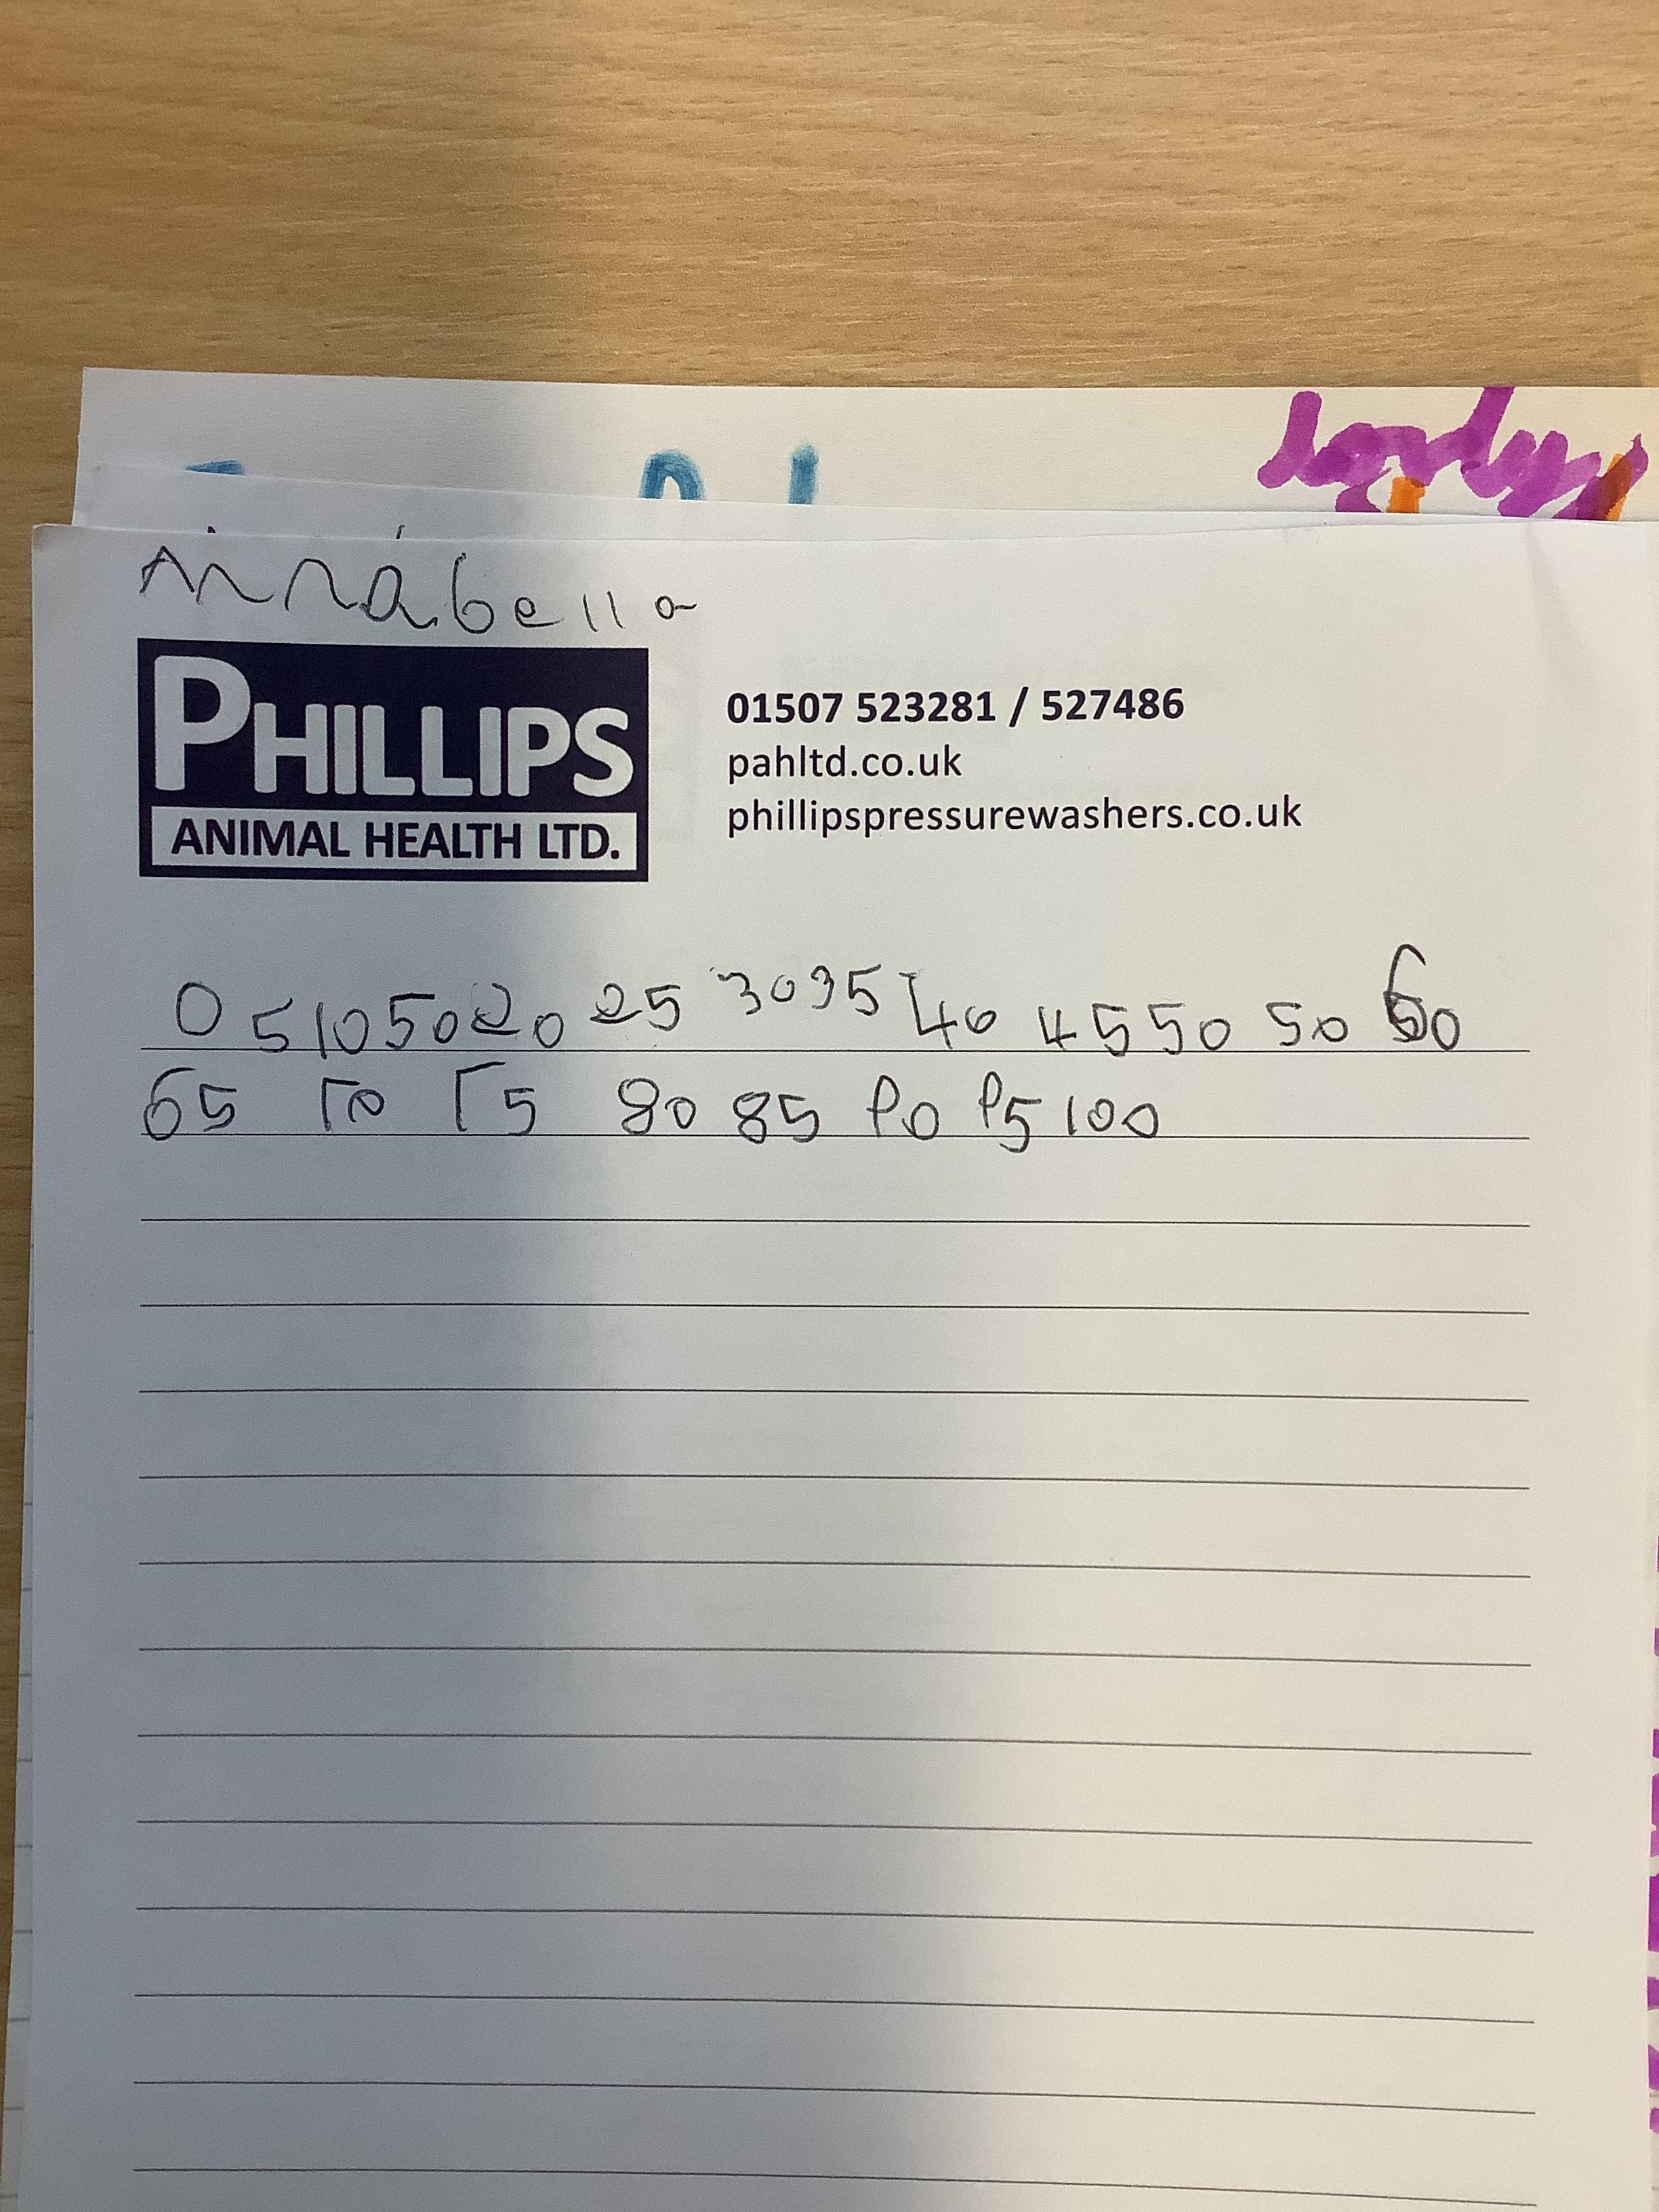 Annabella
PHILLIPS
ANIMAL HEALTH LTD.
01507 523281 / 527486
pahltd.co.uk
phillipspressurewashers.co.uk
0 5 10 50 20 25 30 35 40 45 50 50 60
65 70 75 80 85 90 95 100